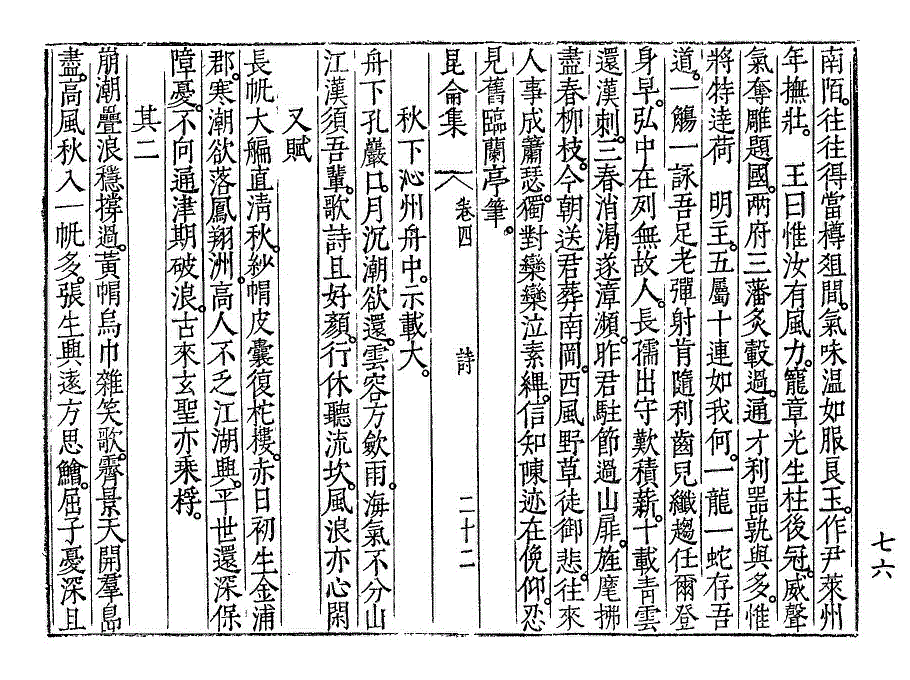 南陌。往往得當樽俎間。氣味温如服良玉。作尹萊州
年撫壯。王曰惟汝有風力。寵章光生柱後冠。威聲
氣奪雕題國。兩府三藩灸轂過。通才利器孰與多。惟
將特達荷 明主。五屬十連如我何。一龍一蛇存吾
道。一觴一詠吾足老。彈射肯隨利齒兒。纖趨任爾登
身早。弘中在列無故人。長孺出守歎積薪。十載靑雲
還漢刺。三春消渴遂漳濵。昨君駐節過山扉。旌麾拂
盡春柳枝。今朝送君葬南岡。西風野草徒御悲。往來
人事成蕭瑟。獨對欒欒泣素縪。信知陳迹在俛仰。忍
見舊臨蘭亭筆。
昆侖集 卷四 詩 二十二
秋下沁州舟中。示載大。
舟下孔巖口。月沉潮欲還。雲容方斂雨。海氣不分山
江漢須吾輩。歌詩且好顏。行休聽流坎。風浪亦心閑
又賦
長帆大艑直淸秋。紗帽皮囊復柁樓。赤日初生金浦
郡。寒潮欲落鳳翔洲。高人不乏江湖興。平世還深保
障憂。不向通津期破浪。古來玄聖亦乘桴。
其二
崩潮疊浪穩撐過。黃帽烏巾雜笑歌。霽景天開羣島
盡。高風秋入一帆多。張生興遠方思鱠。屈子憂深且
七六